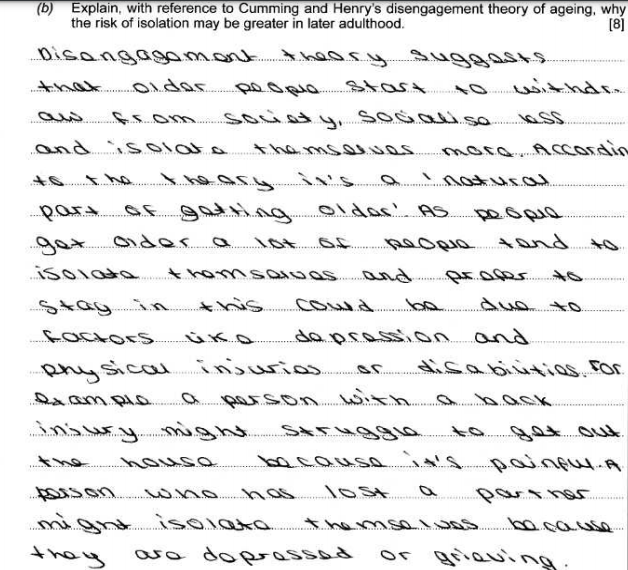 (b) Explain, with reference to Cumming and Henry's disengagement theory of ageing, why
the risk of isolation may be greater in later adulthood. [8]
Disangagement theory suggests
that older people start to withdr-
aw from society, socialise less
and isolate themselves more. Accordin
to the theory it's a 'natural
part of getting older'. As people
get older a lot of people tend to
isolate themselves and prefer to
stay in this could be due to
factors like depression and
physical injuries or disabilities. For
example a person with a back
injury might struggle to get out
the house because it's painful. A
person who has lost a partner
might isolate themselves because
they are depressed or grieving.